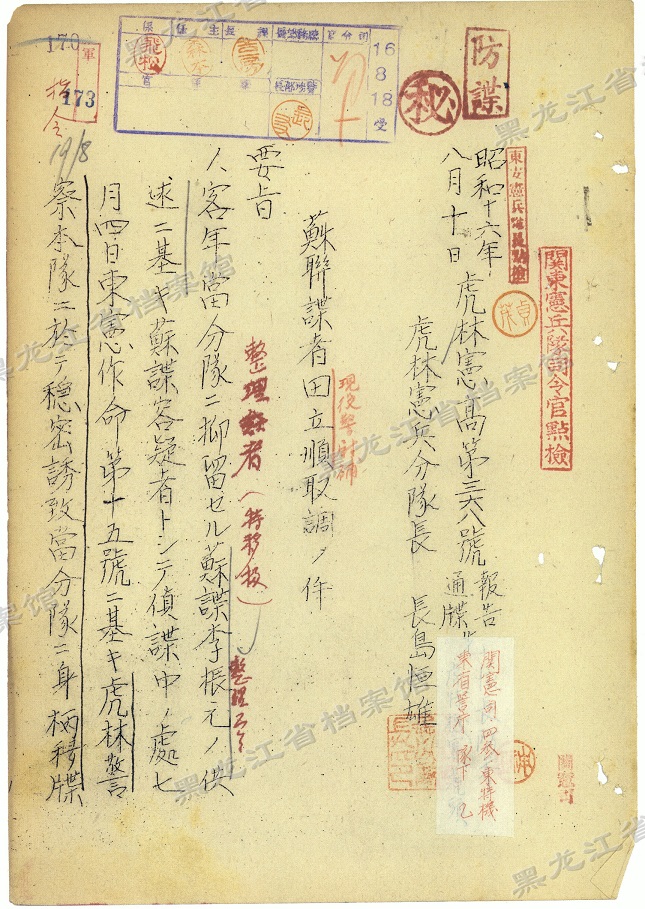 防諜
㊙
16
8
18
受
軍
170
173
指令
19/8
関東憲兵隊司令官點檢
東安憲兵隊長點檢
昭和十六年
八月十日
虎林憲高第三六八號
報告
通牒
虎林憲兵分隊長 長島恒雄
関憲司
蘇聯諜者田立順取調ノ件
整理
(特移扱)
要旨
人客年當分隊ニ抑留セル蘇諜李振元ノ供
述ニ基キ蘇諜容疑者トシテ偵諜中ノ處七
月四日東憲作命第十五號ニ基キ虎林警
察本隊ニ於テ穏密誘致當分隊ニ身柄移牒
黑龙江省档案馆